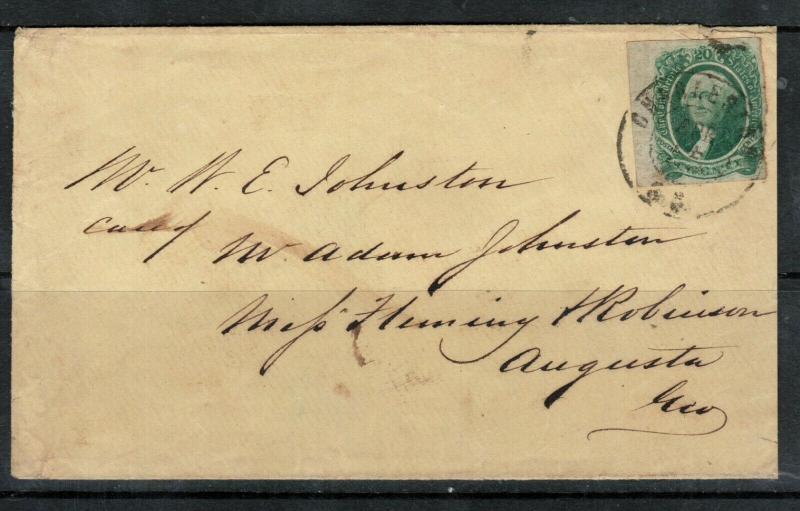 20
CHARLES
Mr. W. E. Johnston
care of
Mr Adam Johnston
Mess Fleming & Robinson
Augusta
Geo